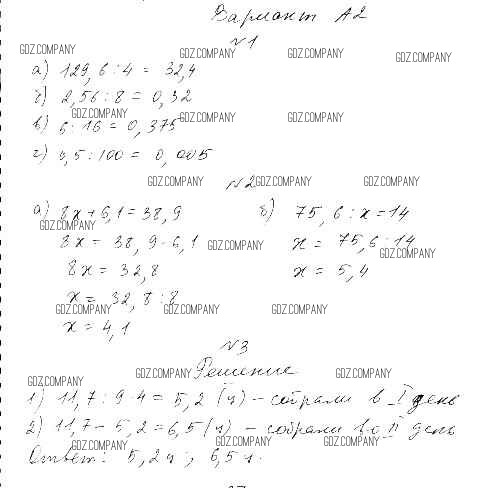 Вариант А2
№1
GDZ.COMPANY GDZ.COMPANY GDZ.COMPANY GDZ.COMPANY
а) 129,6 : 4 = 32,4
б) 2,56 : 8 = 0,32
GDZ.COMPANY GDZ.COMPANY GDZ.COMPANY
в) 6 : 16 = 0,375
г) 0,5 : 100 = 0,005
GDZ.COMPANY №2 GDZ.COMPANY GDZ.COMPANY
а) 8x + 6,1 = 38,9 б) 75,6 : x = 14
GDZ.COMPANY
8x = 38,9 - 6,1 GDZ.COMPANY x = 75,6 : 14
GDZ.COMPANY
8x = 32,8 x = 5,4
x = 32,8 : 8
GDZ.COMPANY GDZ.COMPANY GDZ.COMPANY
x = 4,1
№3
GDZ.COMPANY Решение GDZ.COMPANY
GDZ.COMPANY GDZ.COMPANY
1) 11,7 : 9 · 4 = 5,2 (ц) - собрали в I день
2) 11,7 - 5,2 = 6,5 (ц) - собрали во II день
GDZ.COMPANY GDZ.COMPANY GDZ.COMPANY
Ответ: 5,2 ц; 6,5 ц.